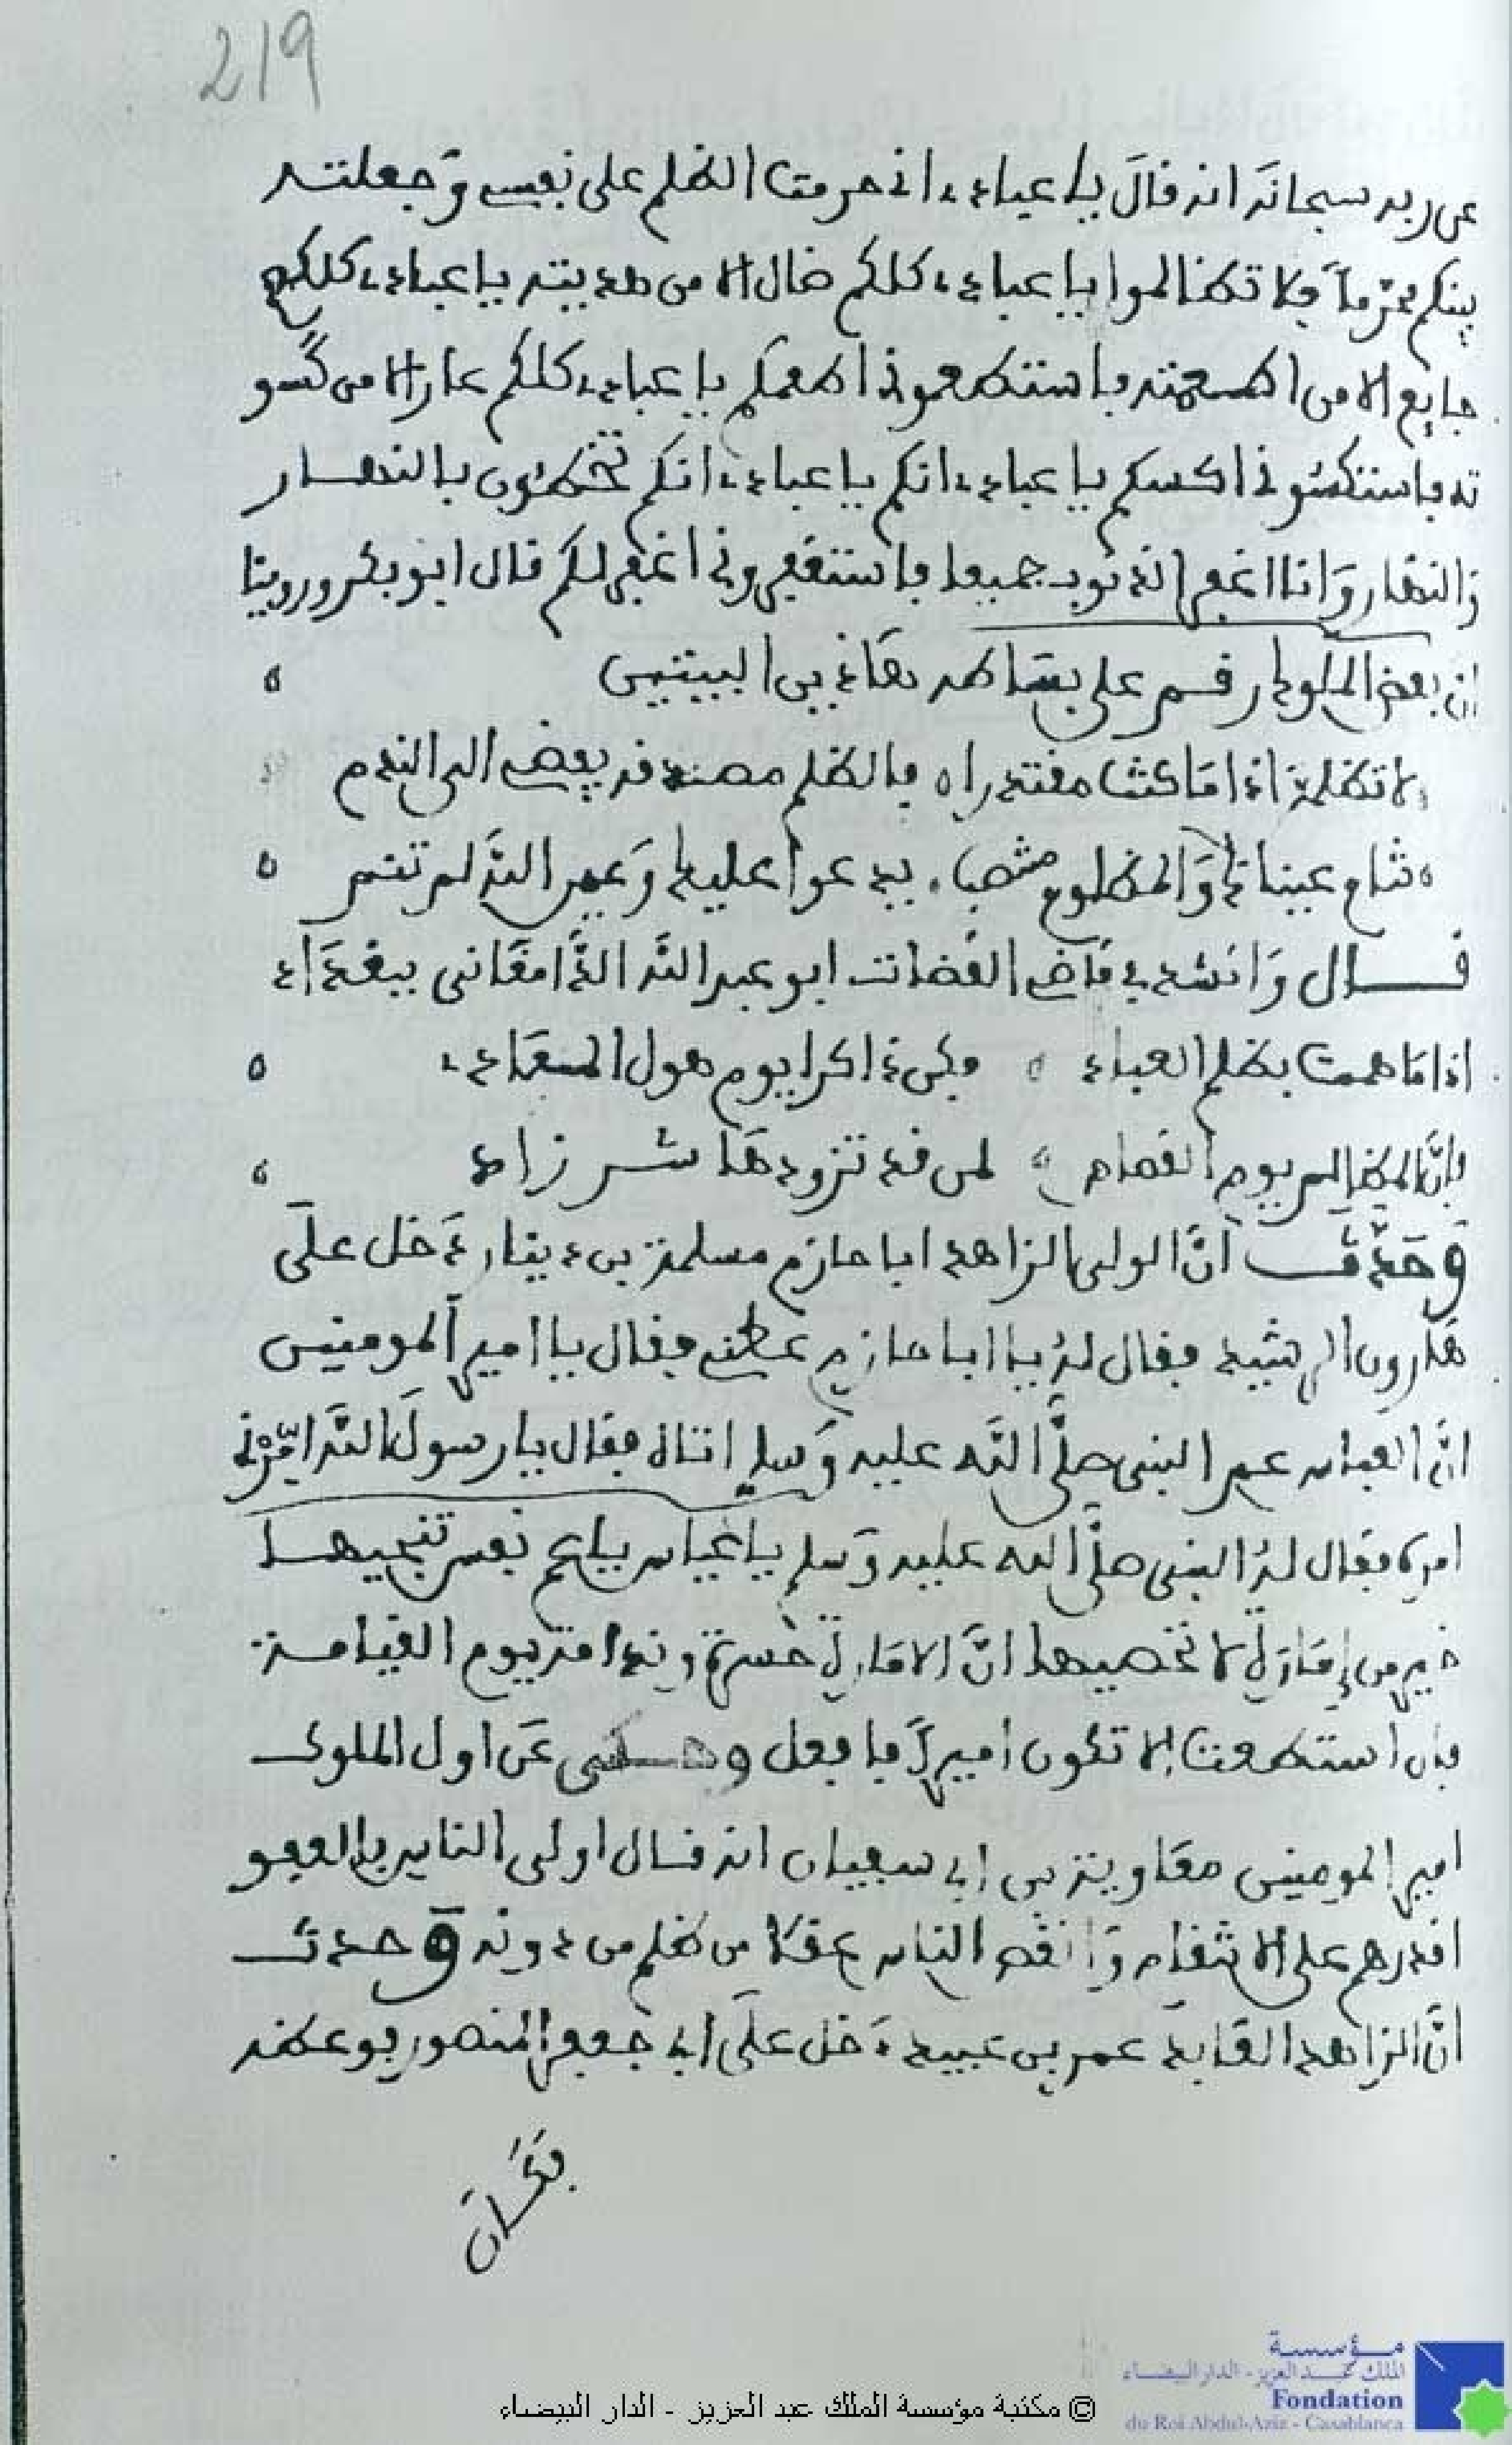 219
عن ربه سبحانه انه قال يا عبادي اني حرمت الظلم على نفسي وجعلته
بينكم محرما فلا تظالموا يا عبادي كلكم ضال الا من هديته يا عبادي كلكم
جايع الا من اطعمته فاستطعموني اطعمكم يا عبادي كلكم عار الا من كسو
ته فاستكسوني اكسكم يا عبادي انكم يا عبادي انكم تخطئون بالنهار
وانا اغفر الذنوب جميعا فاستغفروني اغفر لكم قال ابو بكر وروينا
ان بعض الملوك رقم على بساطه هاذين البيتين
لا تظلمن اذا ما كنت مقتدرا فالظلم مصدره يفضي الى الندم
تنام عيناك والمظلوم منتصب يدعوا عليك وعين الله لم تنم
قال وانشدني قاضي القضات ابو عبد الله الدامغاني ببغداد
اذا ما هممت بظلم العباد فكن ذاكرا يوم هول المعاد
فان المظالم يوم القصاص لمن قد تزودها شر زاد
وحدث ان الولي الزاهد ابا حازم مسلمة بن دينار دخل على
هارون الرشيد فقال له يا ابا حازم عظني فقال يا امير المومنين
ان العباس عم النبي صلى الله عليه وسلم اتاه فقال يا رسول الله امرني
امرة فقال له النبي صلى الله عليه وسلم يا عباس يا عم نفس تنجيها
خير من إمارة لا تحصيها ان الامارة حسرة وندامة يوم القيامة
فان استطعت الا تكون اميرا فافعل وحكي عن اول الملوك
امير المومنين معاوية بن ابي سفيان انه قال اولى الناس بالعفو
اقدرهم على الانتقام وانقص الناس عقلا من ظلم من دونه وحدث
ان الزاهد العابد عمر بن عبيد دخل على ابي جعفر المنصور فوعظه
فكان
© مكتبة مؤسسة الملك عبد العزيز - الدار البيضاء
مؤسسة
الملك عبد العزيز - الدار البيضاء
Fondation
du Roi Abdul-Aziz - Casablanca